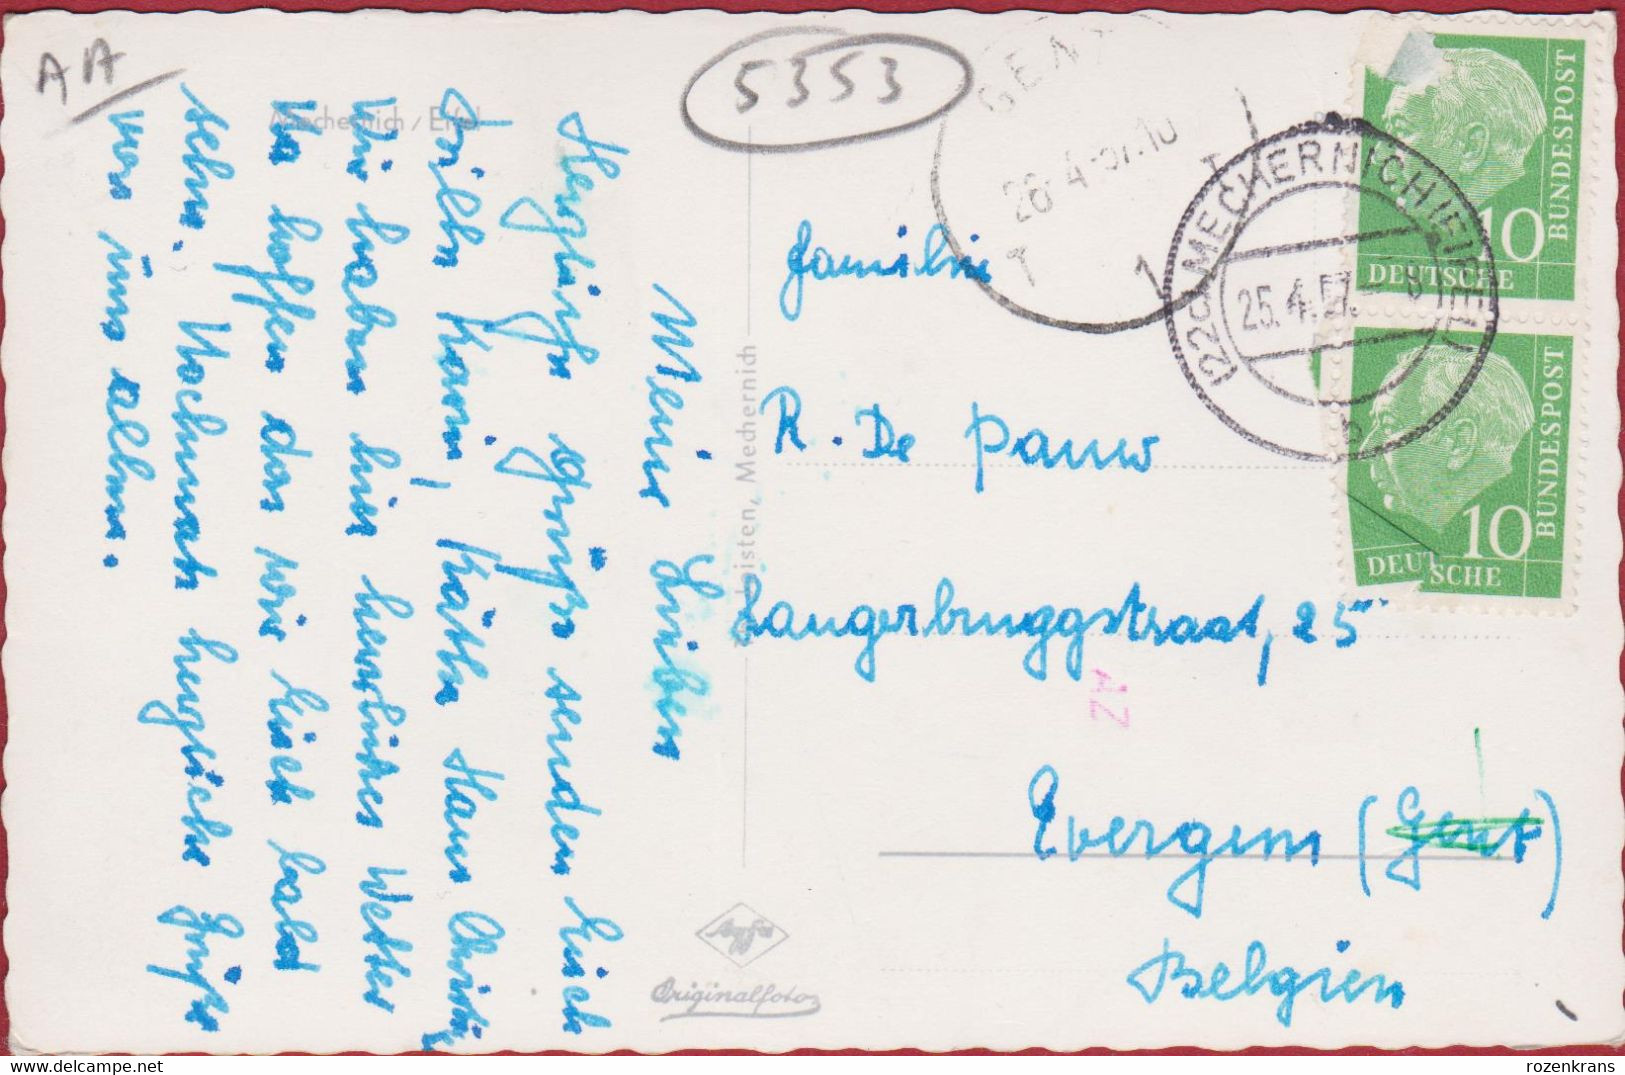 AA
5353
Mechernich / Eifel
Meine Lieben
Herzliche Grüße senden Euch
Willi, Karin, Käthe Hans Christ
Wir haben hier herrliches Wetter
Wa hoffen das wir Euch bald
sehn. Nochmals herzliche Grüße
von uns allen.
Leisten, Mechernich
Agfa
Originalfoto
GENT
26-4-57.10
T 1 T
(22c) MECHERNICH (EIFEL)
25.4.57.
b
DEUTSCHE
BUNDESPOST
10
DEUTSCHE
BUNDESPOST
10
Familie
R. De Pauw
Langerbruggstraat, 25
AZ
Evergem (Gent)
Belgien
rozenkrans